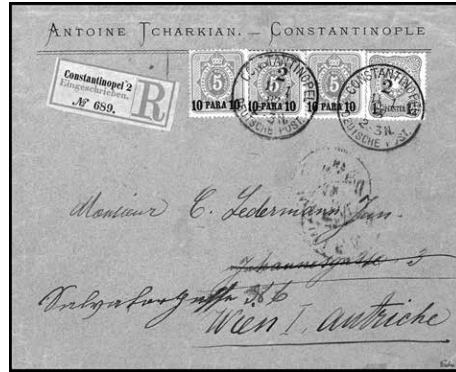 ANTOINE TCHARKIAN. — CONSTANTINOPLE
Constantinopel 2
Eingeschrieben.
№ 689.
R
5
10 PARA 10
5
10 PARA 10
5
10 PARA 10
CONSTANTINOPEL
2
2-3N.
DEUTSCHE POST.
CONSTANTINOPEL
2
2-3N.
DEUTSCHE POST.
Monsieur C. Ledermann Jun.
Johannesgasse 3
Salvatorgasse
Wien I. Autriche